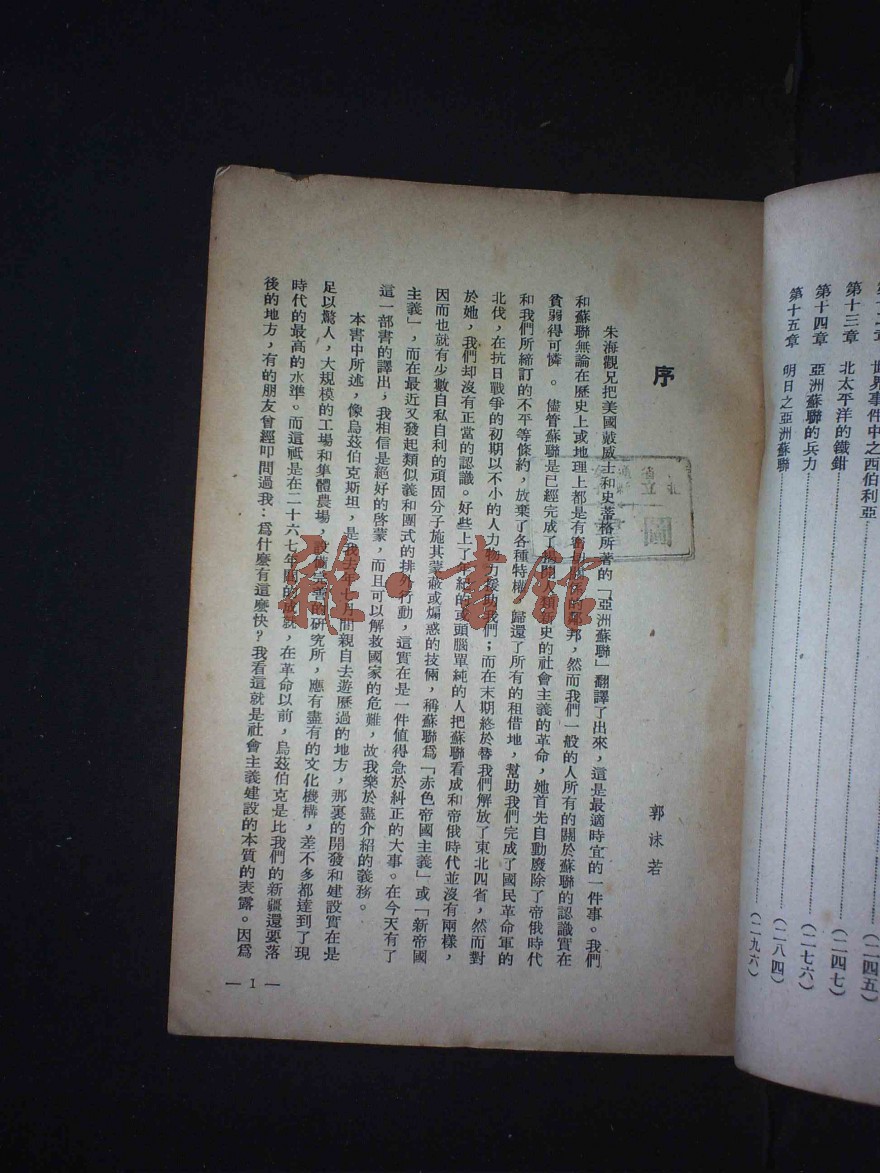 第十三章 北太平洋的鐵鉗 (二四七)
第十四章 亞洲蘇聯的兵力 (二七六)
第十五章 明日之亞洲蘇聯 (二八四)
(二九六)
世界事件中之西伯利亞 (二四五)
序
郭沫若
朱海觀兄把美國戴威士和史蒂格所著的「亞洲蘇聯」翻譯了出來，這是最適時宜的一件事。我們
和蘇聯無論在歷史上或地理上都是有的邦，然而我們一般的人所有的關於蘇聯的認識實在
貧弱得可憐。儘管蘇聯是已經完成了史的社會主義的革命，她首先自動廢除了帝俄時代
和我們所締訂的不平等條約，放棄了各種特權，歸還了所有的租借地，幫助我們完成了國民革命軍的
北伐，在抗日戰爭的初期以不小的人力物力援助我們；而在末期終於替我們解放了東北四省，然而對
於她，我們却沒有正當的認識。好些上了年紀的或頭腦單純的人把蘇聯看成和帝俄時代並沒有兩樣，
因而也就有少數自私自利的頑固分子施其蒙蔽或煽惑的技倆，稱蘇聯爲「赤色帝國主義」或「新帝國
主義」，而在最近又發起類似義和團式的排外行動，這實在是一件值得急於糾正的大事。在今天有了
這一部書的譯出，我相信是絕好的啓蒙，而且可以解救國家的危難，故我樂於盡介紹的義務。
本書中所述，像烏茲伯克斯坦，是我去年七月間親自去遊歷過的地方，那裏的開發和建設實在是
足以驚人，大規模的工場和集體農場，設備完善的研究所，應有盡有的文化機構，差不多都達到了現
時代的最高的水準。而這祇是在二十六七年間的成就，在革命以前，烏茲伯克是比我們的新疆還要落
後的地方，有的朋友曾經叩問過我：爲什麼有這麼快？我看這就是社會主義建設的本質的表露。因爲
— 1 —
雜·書館
圖